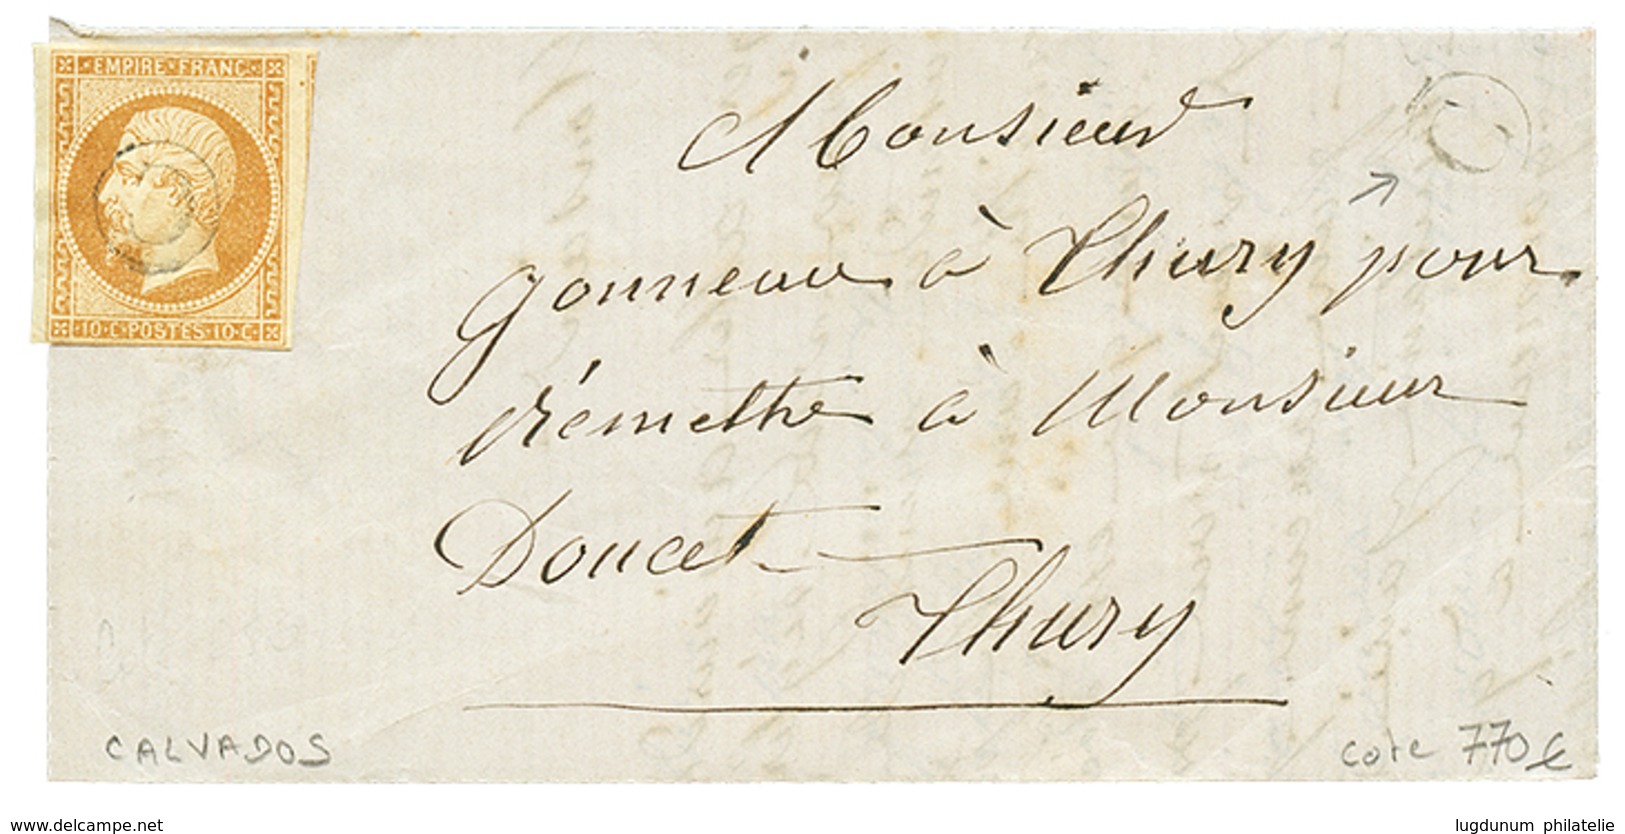 EMPIRE FRANC
10·C·POSTES·10·C·
Monsieur
Gonneau à Thury pour
rémettre à Monsieur
Doucet
Thury
CALVADOS
cote 770 €
www.delcampe.net
lugdunum philatelie